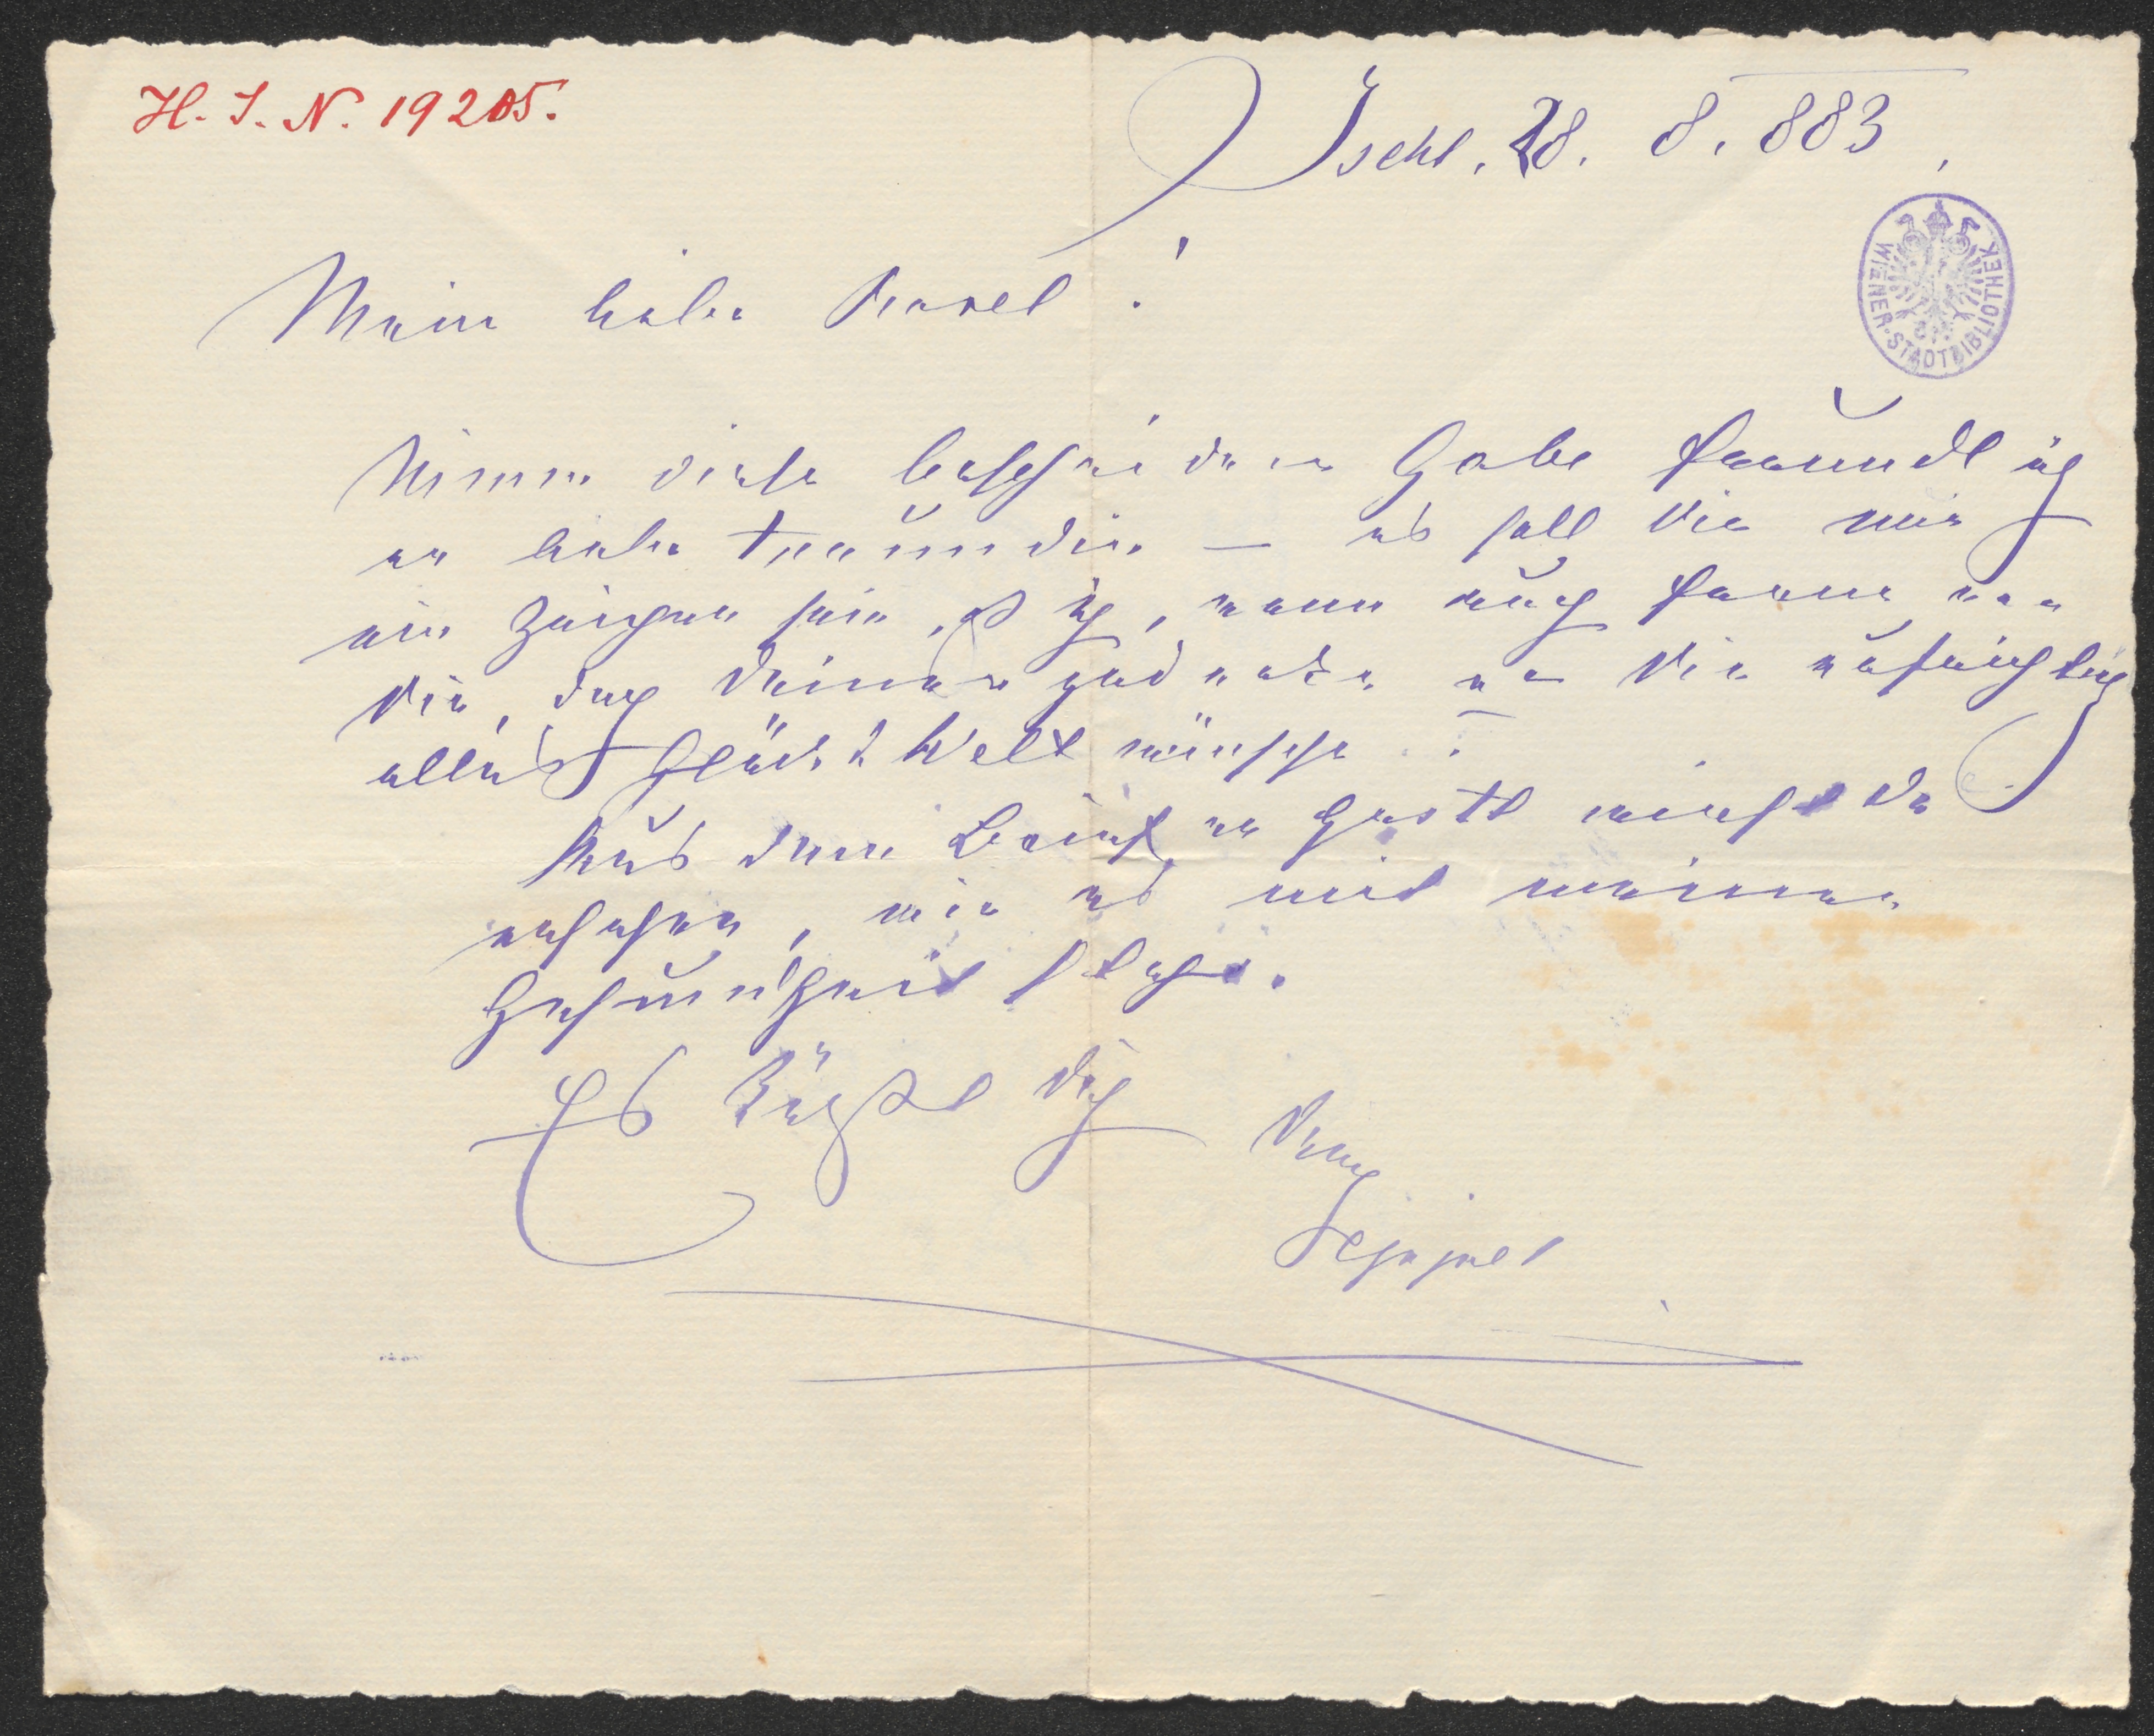 H. I. N. 19205.
Ischl. 28. 8. 883.
WIENER-STADTBIBLIOTHEK
Mein liebe !
Nimm diese bescheidene Gabe freundlich
an liebe Freundin — es soll Dir nur
ein Zeichen sein, ich, wenn auch ferne von
Dir, doch Deiner gedenke Dir aufrichtig
alles Glück d Welt wünsche.
Aus dem Brief an Gustl wirst Du
ersehen, wie es mit meiner
Gesundheit stehe.
Es küßt Dich